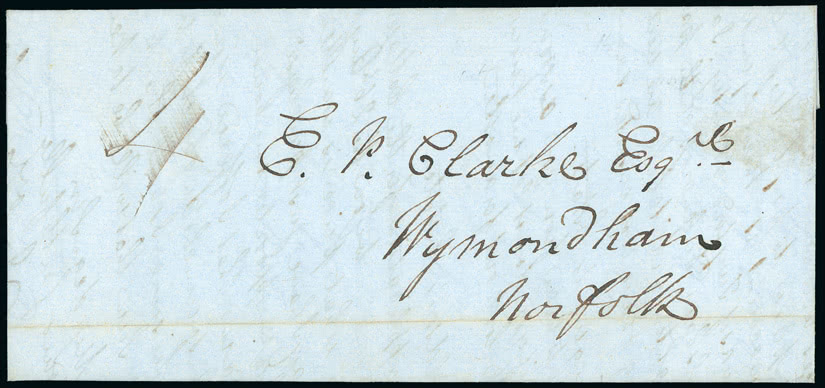 4
E. P. Clarke Esqre
Wymondham
Norfolk